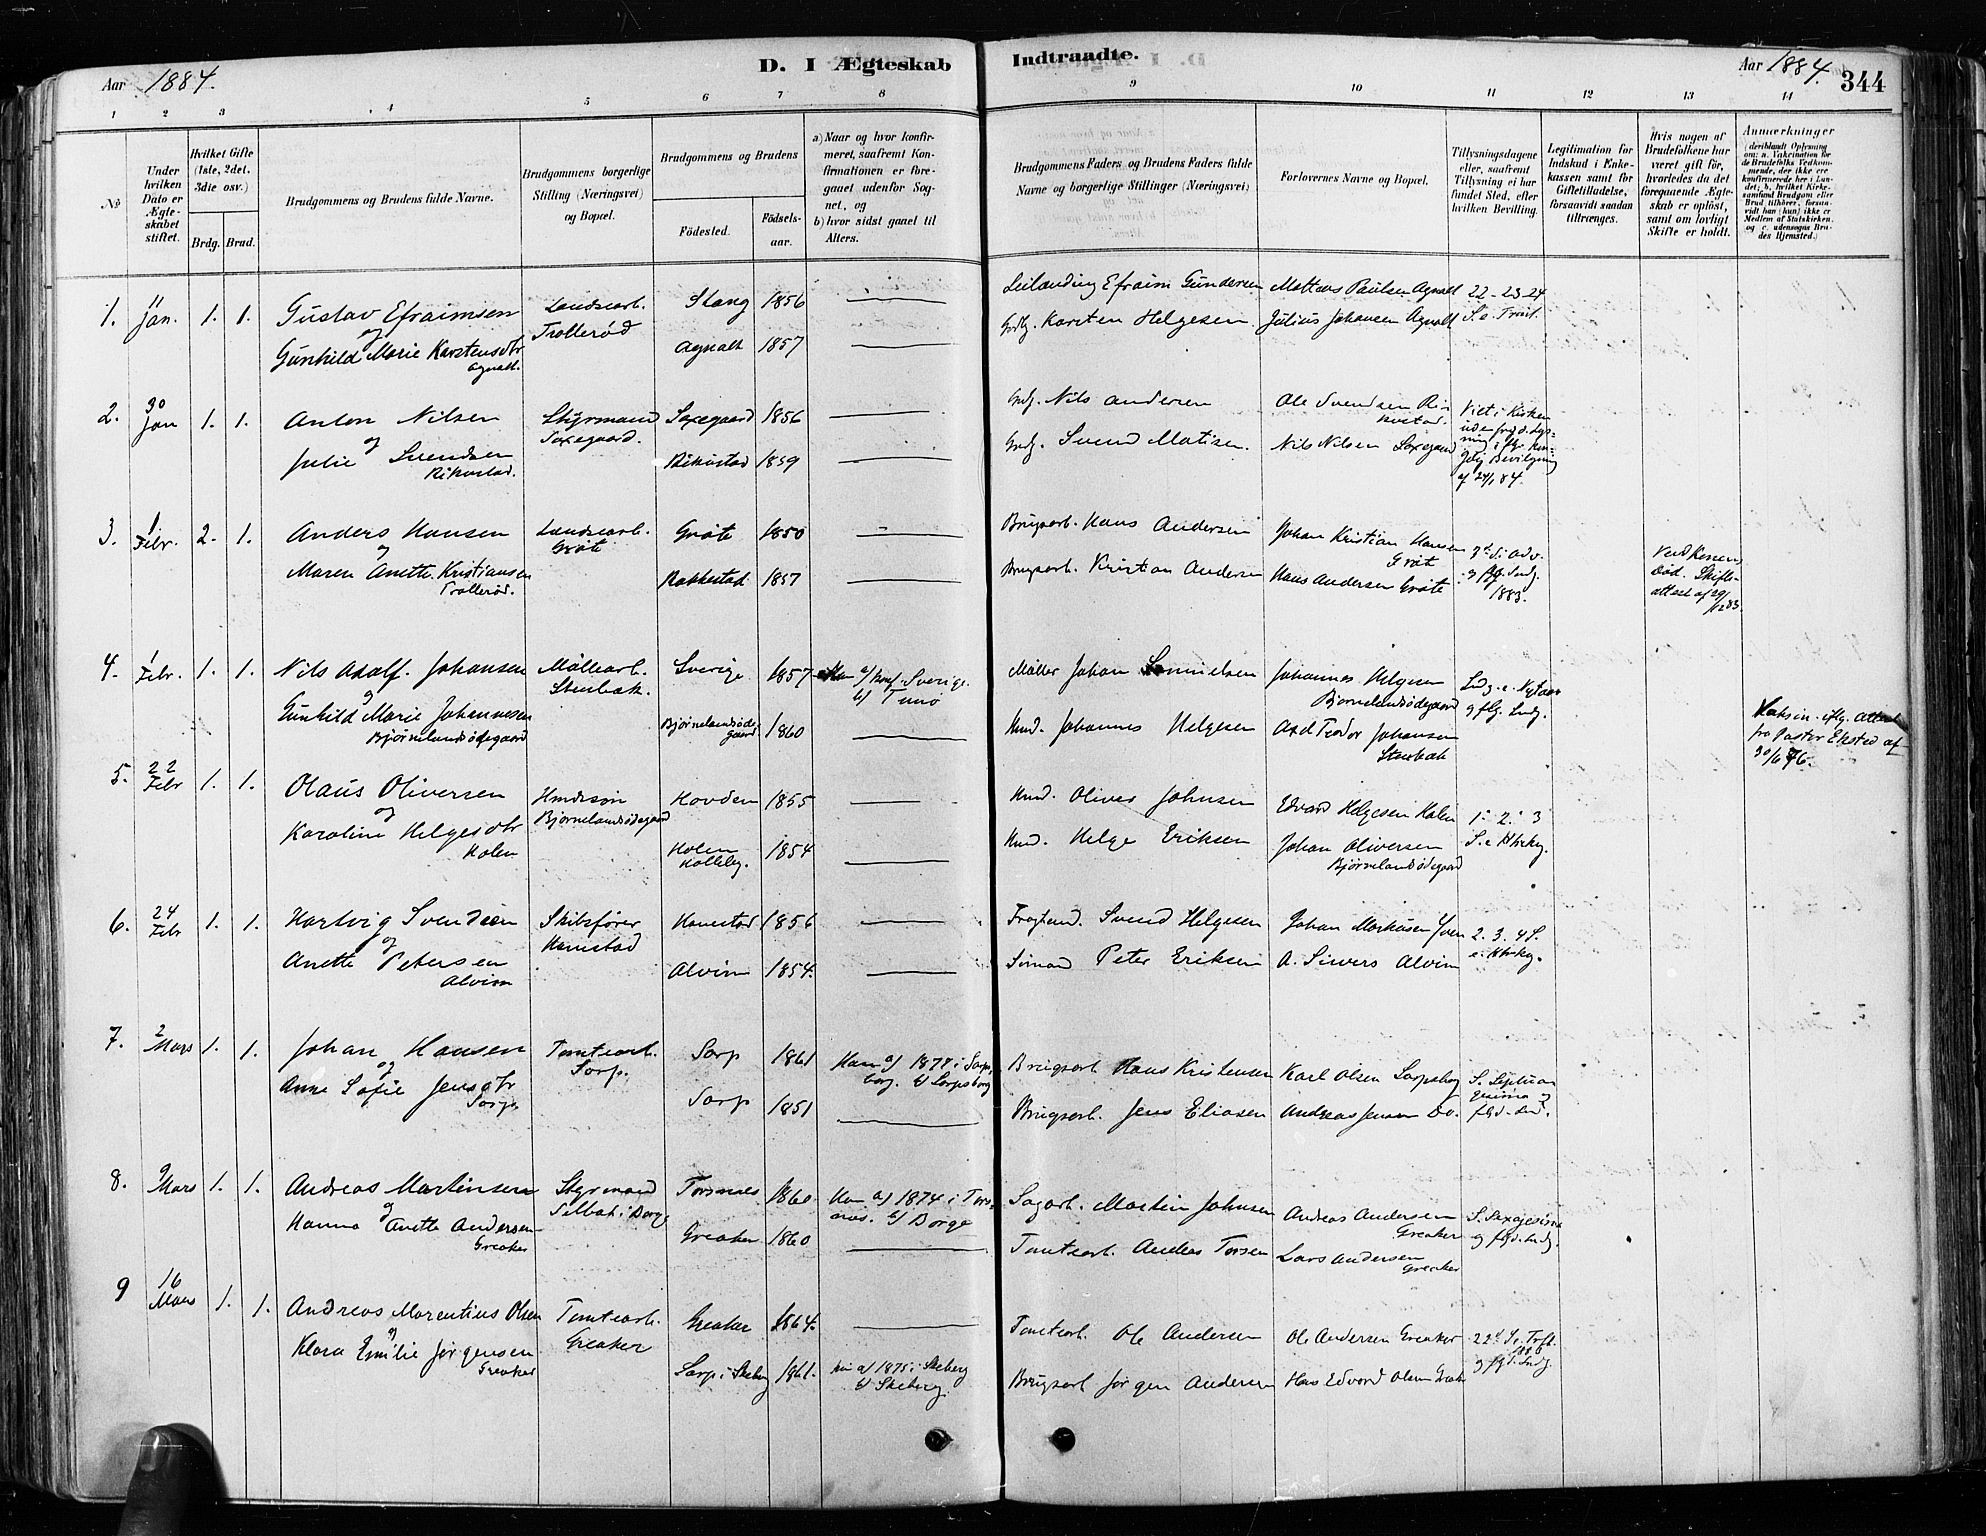 D. I Ægteskab Indtraadte.
Aar 1884.
Aar 1884.
344
1 2 3 4 5 6 7 8 9 10 11 12 13 14
No
Under hvilken Dato er Ægteskabet stiftet.
Hvilket Gifte (1ste, 2det, 3die osv.)
Brdg. Brud.
Brudgommens og Brudens fulde Navne.
Brudgommens borgerlige Stilling (Næringsvei) og Bopæl.
Brudgommens og Brudens
Fødested.
Fødselsaar.
a) Naar og hvor konfirmeret, saafremt Konfirmationen er foregaaet udenfor Sognet, og
b) hvor sidst gaaet til Alters.
Brudgommens Faders og Brudens Faders fulde Navne og borgerlige Stillinger (Næringsvei)
Forlovernes Navne og Bopæl.
Tillysningsdagene eller, saafremt Tillysning ei har fundet Sted, efter hvilken Bevilling.
Legitimation for Indskud i Enkekassen samt for Giftetilladelse, forsaavidt saadan tiltrænges.
Hvis nogen af Brudefolkene har været gift før, hvorledes da det foregaaende Ægteskab er opløst, samt om lovligt Skifte er holdt.
Anmerkninger
1. Jan. 1. 1. Gustav Efraimsen Landarb. Stang 1856 Efraim Gundersen Mattæus Paulsen Agnalt 22-23-24
og Trollerød Karsten Helgesen Julius Johansen Agnalt S. e. Trint.
Gunhild Marie Karstensdtr Agnalt 1857
Agnalt.
2. 30 Jan 1. 1. Anton Nilsen Styrmand Saxegaard 1856 Grdj. Nils Andersen Ole Svendsen
og Saxegaard.
Julie Svendsen 1859 Grdj. Svend Matisen. Nils Nilsen Saxegaard
Viet i Kirken
Bevilgning
af 24/1 84.
3. 1 Febr. 2. 1. Anders Hansen Landarb. Grøte 1850 Brugsarb. Hans Andersen Johan Kristian Hansen
og Grøte Grøt
Maren Anette Kristiansen Rakkestad 1857 Brugsarb. Kristian Andersen Hans Andersen Grøte
Trollerød.
1883.
Ved Konens
Død. Skifte-
attest af 29/12 83.
4. 1 Febr. 1. 1. Nils Adolf Johansen Møllearb. Sverige 1857 a/ konf. Sverige
og Stenbæk. b/ Tune
Møller Johan Johannes Helgesen
Bjørnelandsødegaard
Gunhild Marie Johannesen Bjørnelandsødegaard 1860 Hmd. Johannes Helgesen Axel Teodor Johansen
Bjørnelandsødegaard Stenbæk
Vaksin. iflg. Attest
fra Pastor Eksted af
30/6 76.
5. 22 Febr 1. 1. Olaus Oliversen Hmdssøn Hovden 1855 Hmd. Oliver Johnsen Edvard Helgesen Holen 1. 2. 3
og Bjørnelandsødegaard
Karoline Helgesdtr Holen 1854 Hmd. Helge Eriksen Johan Oliversen
Holen Bjørnelandsødegaard
6. 24 Febr 1. 1. Hartvig Svendsen Skibsfører Hannestad 1856 Svend Helgesen Johan Markusen 2. 3. 4 S.
og Hannestad
Anette Petersen Alvim 1854. Sømand Peter Eriksen A. Siwers Alvim
Alvim
7. 2 Mars 1. 1. Johan Hansen Tomtearb. Sarp 1861 Ham a/ 1877 i Sarpsborg. b/ Sarpsborg Brugsarb. Hans Kristensen Karl Olsen Sarpsborg
og Sarp.
Anne Sofie Jensdtr Sarp 1851 Brugsarb. Jens Eliasen Andreas Jensen Do.
Sarp
8. 9 Mars 1. 1. Andreas Martinsen Styrmand Torsnæs 1860 Ham a/ 1874 i Torsnæs. b/ Borge Sagarb. Martin Johnsen Andreas Andersen
og i Borge Greaker
Hanna Anette Andersen Greaker 1860 Tomtearb. Andreas Torsen Lars Andersen
Greaker Greaker
9 16 Mars 1. 1. Andreas Marentius Olsen Tomtearb. Greaker 1864. Tomtearb. Ole Andersen Ole Andersen Greaker
og Greaker
Klara Emilie Jørgensen Sarp i Skeberg 1861. a/ 1875 i Skeberg b/ Skeberg. Brugsarb Jørgen Andersen Hans Edvard Olsen
Greaker